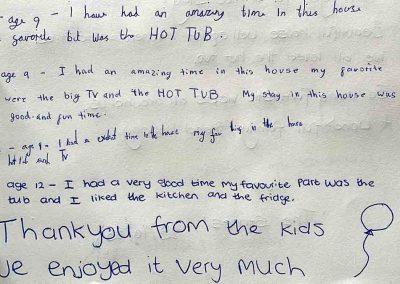 - age 9 - I have had an amazing time in this house
favorite bit was the HOT TUB.
age 9 - I had an amazing time in this house my favorite
were the big TV and the HOT TUB. My stay in this house was
good and fun time.
- age 9 - I had a time in the house my big in the
and TV
age 12 - I had a very good time my favourite part was the
tub and I liked the kitchen and the fridge.
Thankyou from the kids
we enjoyed it very much